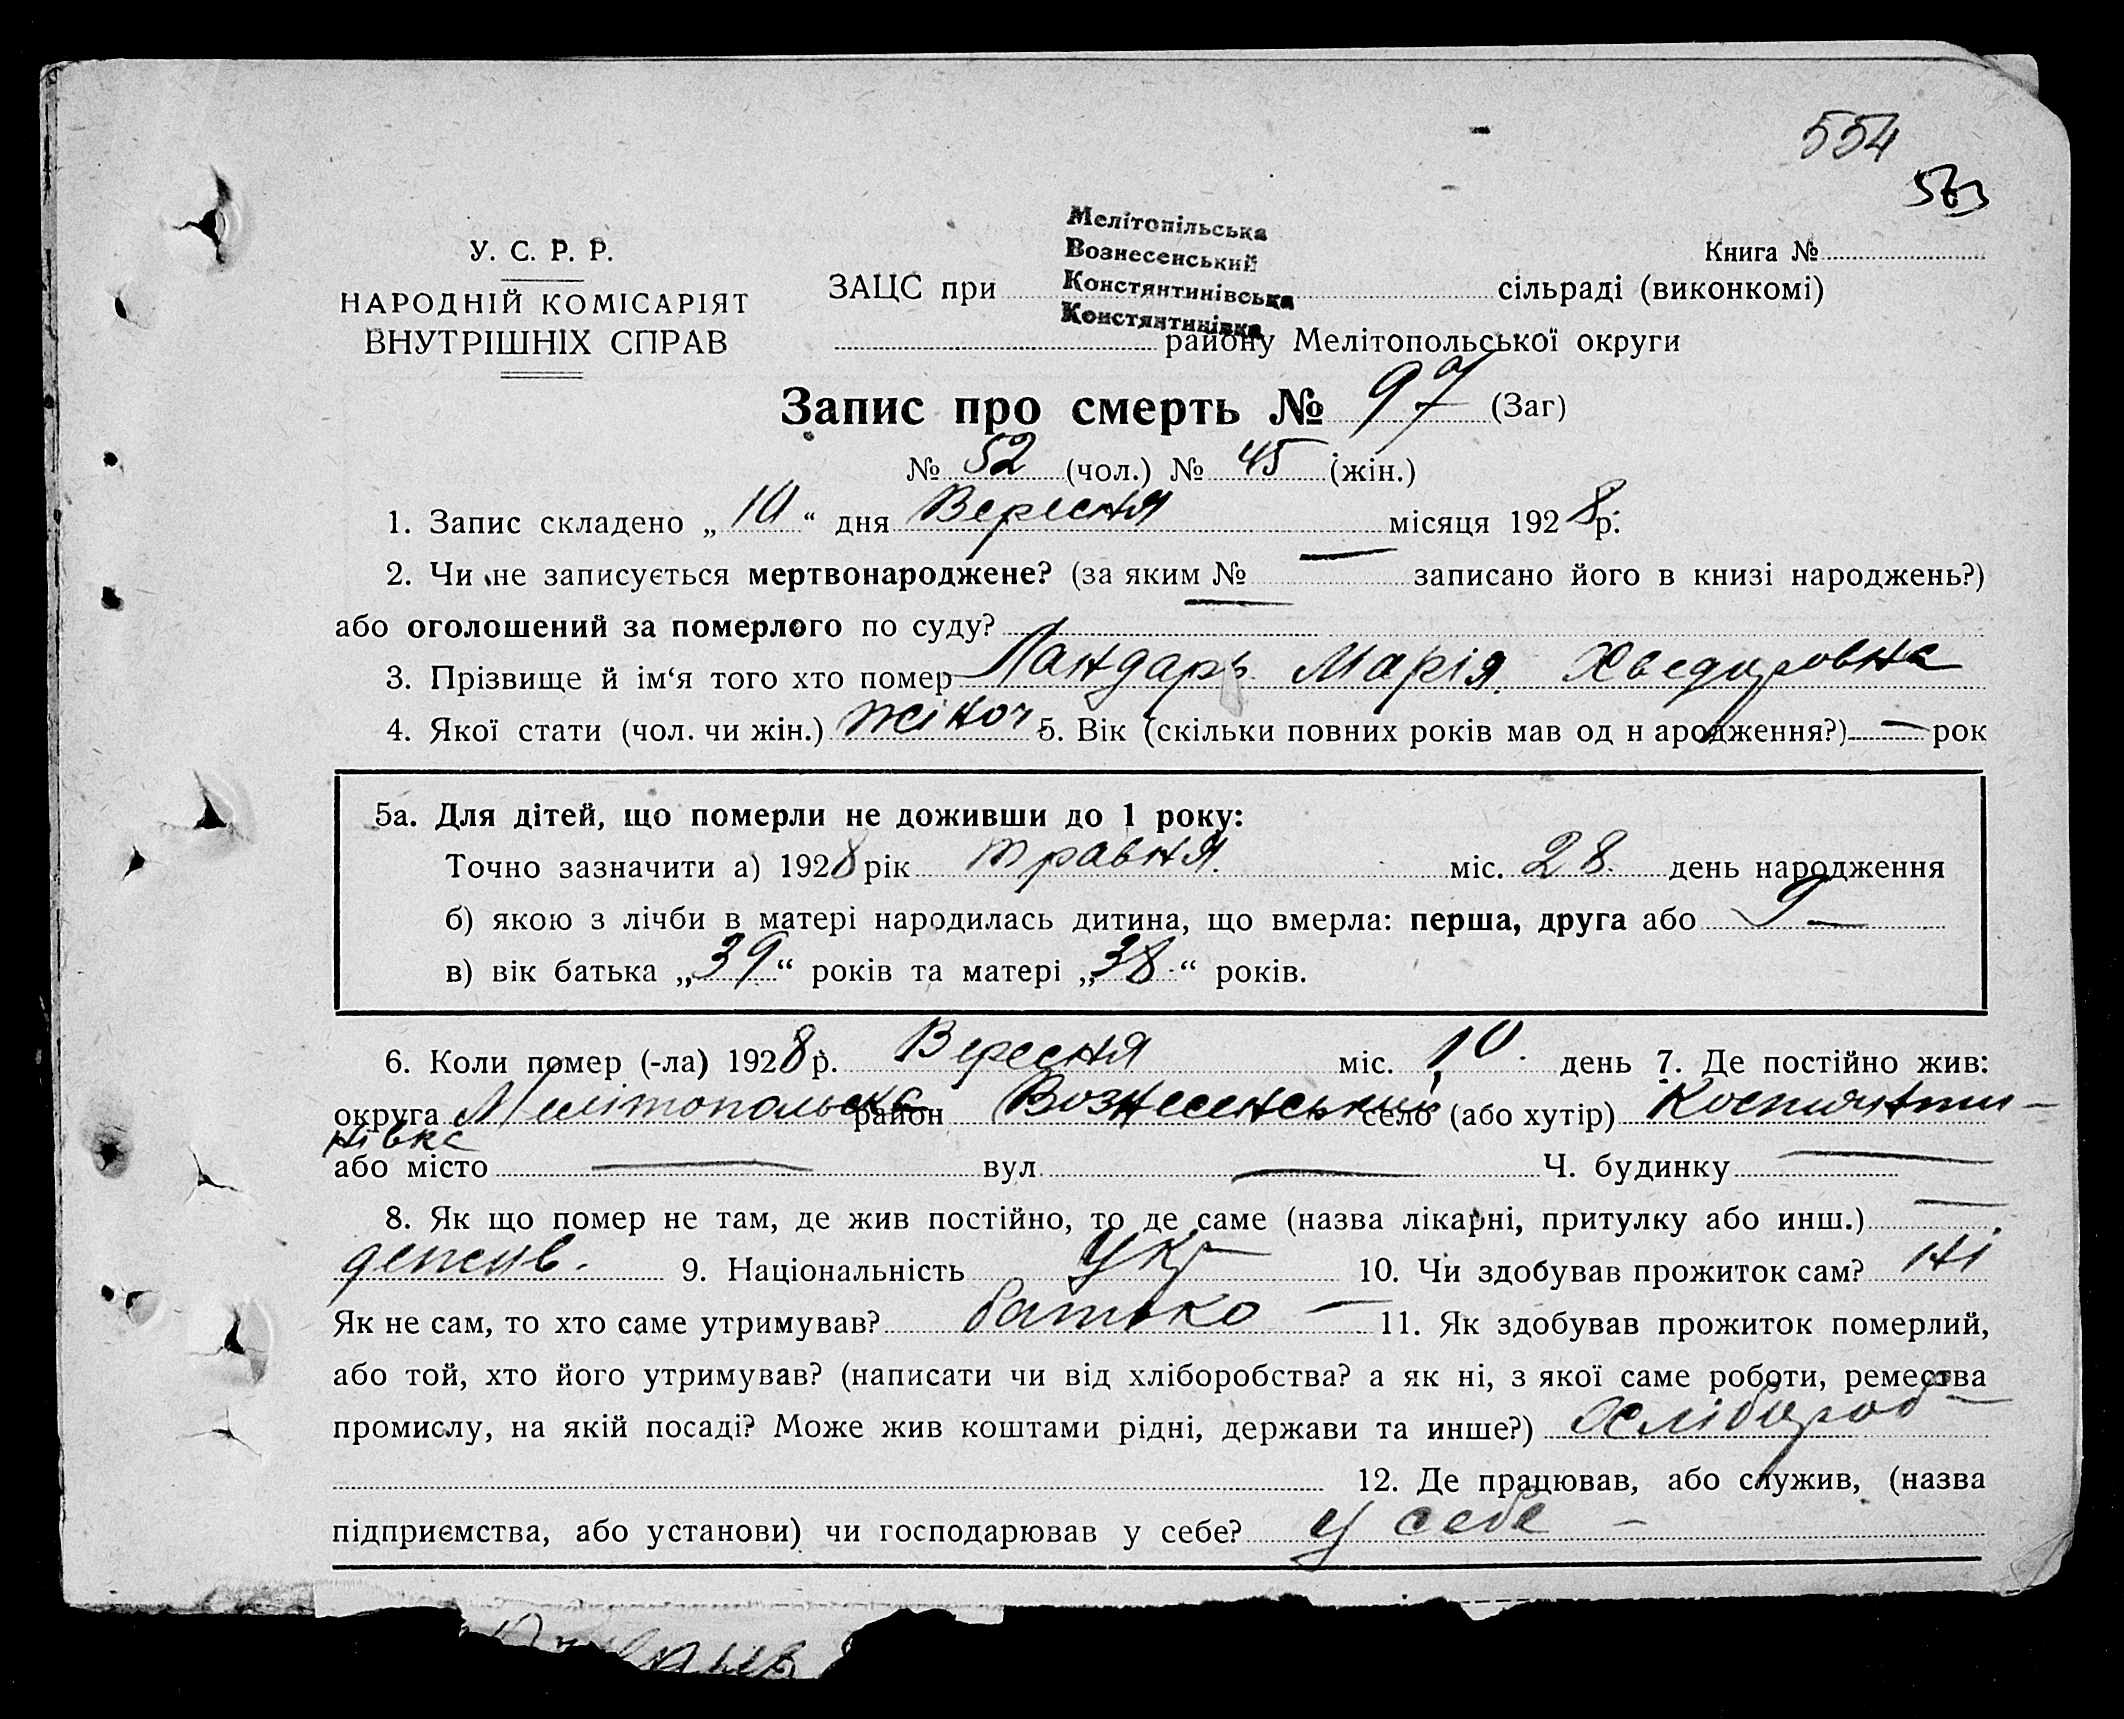 554
563
У. С. Р. Р.
НАРОДНІЙ КОМІСАРІЯТ
ВНУТРІШНІХ СПРАВ
Книга №
Мелітопільська
Вознесенський
Констянтинівська
Констянтинівка
ЗАЦС при сільраді (виконкомі)
району Мелітопольської округи
Запис про смерть № 97 (Заг)
№ 52 (чол.) № 45 (жін.)
1. Запис складено „10“ дня Вересня місяця 1928 р.
2. Чи не записується мертвонароджене? (за яким № — записано його в книзі народжень?)
або оголошений за померлого по суду? —
3. Прізвище й ім‘я того хто помер Пандарь Марія Хведоровна
4. Якої стати (чол. чи жін.) жіноч 5. Вік (скільки повних років мав од н ародження?) — рок
5а. Для дітей, що померли не доживши до 1 року:
Точно зазначити а) 1928 рік травня міс. 28 день народження
б) якою з лічби в матері народилась дитина, що вмерла: перша, друга або 9 —
в) вік батька „39“ років та матері „38“ років.
6. Коли помер (-ла) 1928 р. Вересня міс. 10 день 7. Де постійно жив:
округа Мелітопольска район Вознесенський село (або хутір) Костянти-
нівка
або місто — вул — Ч. будинку —
8. Як що помер не там, де жив постійно, то де саме (назва лікарні, притулку або инш.) —
де жив. 9. Національність Укр 10. Чи здобував прожиток сам? ні
Як не сам, то хто саме утримував? батько — 11. Як здобував прожиток померлий,
або той, хто його утримував? (написати чи від хліборобства? а як ні, з якої саме роботи, ремества
промислу, на якій посаді? Може жив коштами рідні, держави та инше?) Хлібороб —
12. Де працював, або служив, (назва
підприємства, або установи) чи господарював у себе? у себе —